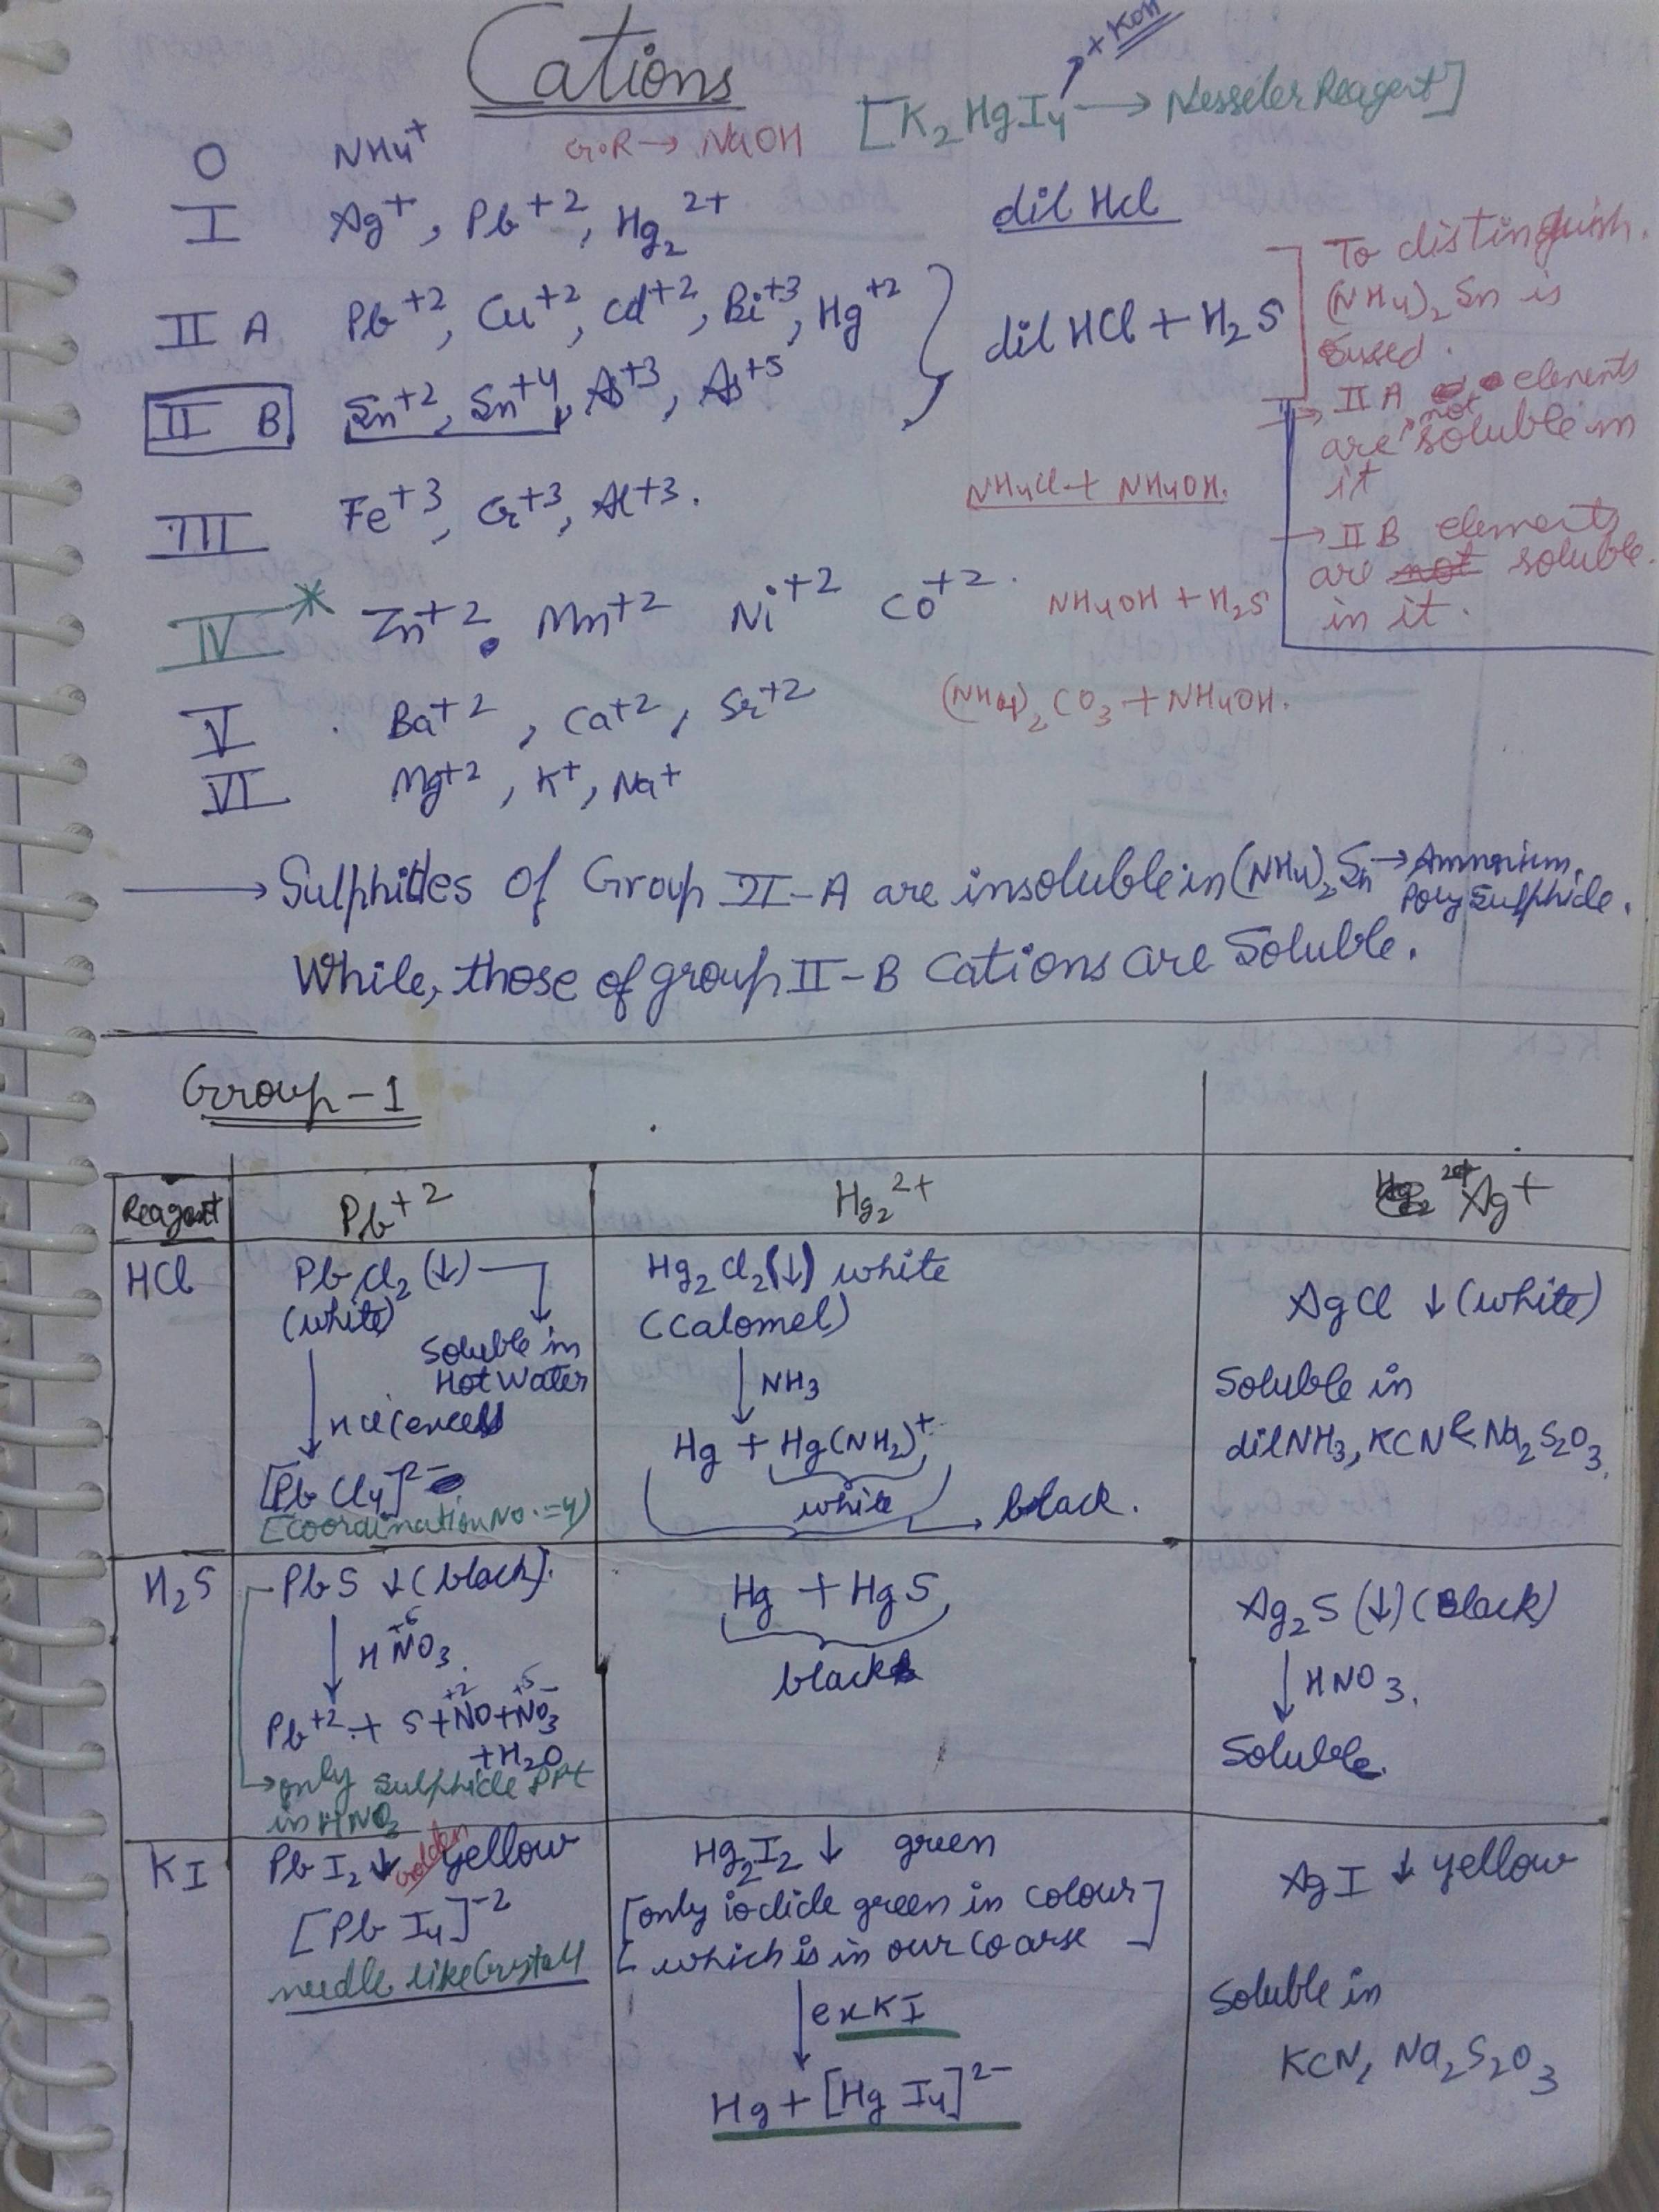 Cations
+ KOH
[K2HgI4 → Nesseler Reagent]
O NH4+ G.R → NaOH
I Ag+, Pb+2, Hg2 2+ dil HCl
II A Pb+2, Cu+2, Cd+2, Bi+3, Hg+2
II B Sn+2, Sn+4, As+3, As+5
dil HCl + H2S
To distinguish.
(NH4)2Sn is
used.
→ II A elements
are not soluble in
it
→ II B elements
are not soluble.
in it.
III Fe+3, Cr+3, Al+3. NH4Cl + NH4OH.
IV * Zn+2, Mn+2 Ni+2 Co+2. NH4OH + H2S
V Ba+2, Ca+2, Sr+2 (NH4)2CO3 + NH4OH.
VI Mg+2, K+, Na+
→ Sulphides of Group II-A are insoluble in (NH4)2Sn → Ammonium.
Poly Sulphide.
While, those of group II-B Cations are Soluble.
Group-1
Reagent Pb+2 Hg2 2+ Ag+
HCl
PbCl2 (↓)
(white)
Soluble in
Hot Water
↓ HCl (excess
[PbCl4]2-
[coordination No. = 4)
Hg2Cl2 (↓) white
(Calomel)
↓ NH3
Hg + Hg(NH2)+
white
→ black.
AgCl ↓ (white)
Soluble in
dil NH3, KCN & Na2S2O3.
H2S
PbS ↓ (black).
↓ H+5NO3.
Pb+2 + S + +2NO + +5NO3-
+ H2O
→ only Sulphide PPt
in HNO3
Hg + HgS
black
Ag2S (↓) (Black)
↓ HNO3.
Soluble.
KI
PbI2 ↓ golden yellow
[PbI4]-2
needle like Crystall
Hg2I2 ↓ green
[only iodide green in colour
which is in our coarse]
↓ ex KI
Hg + [HgI4]2-
AgI ↓ yellow
Soluble in
KCN, Na2S2O3